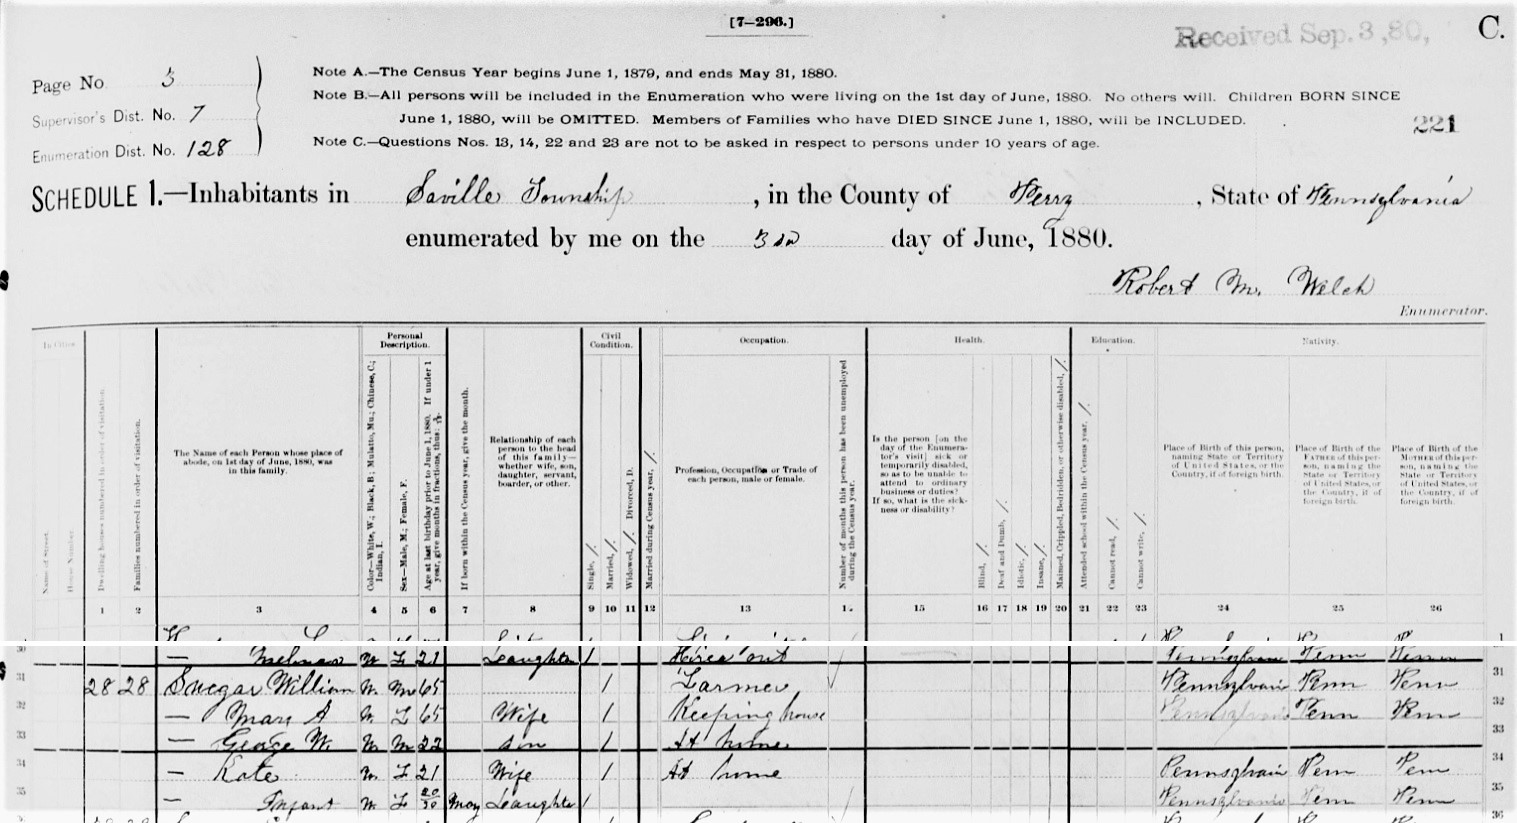 [7–296.]
Received Sep. 3, 80,
C.
Page No. 3
Supervisor's Dist. No. 7
Enumeration Dist. No. 128
Note A.—The Census Year begins June 1, 1879, and ends May 31, 1880.
Note B.—All persons will be included in the Enumeration who were living on the 1st day of June, 1880. No others will. Children BORN SINCE
June 1, 1880, will be OMITTED. Members of Families who have DIED SINCE June 1, 1880, will be INCLUDED.
Note C.—Questions Nos. 13, 14, 22 and 23 are not to be asked in respect to persons under 10 years of age.
221
SCHEDULE 1.—Inhabitants in Saville Township, in the County of Perry, State of Pennsylvania
enumerated by me on the 3rd day of June, 1880.
Robert M. Welch
Enumerator.
In Cities.
Name of Street.
House Number.
Dwelling houses numbered in order of visitation.
Families numbered in order of visitation.
The Name of each Person whose place of
abode, on 1st day of June, 1880, was
in this family.
Personal
Description.
Color—White, W.; Black, B.; Mulatto, Mu.; Chinese, C.;
Indian, I.
Sex—Male, M.; Female, F.
Age at last birthday prior to June 1, 1880. If under 1
year, give months in fractions, thus: 3/12
If born within the Census year, give the month.
Relationship of each
person to the head
of this family—
whether wife, son,
daughter, servant,
boarder, or other.
Civil
Condition.
Single, /.
Married, /.
Widowed, /. Divorced, D.
Married during Census year, /.
Occupation.
Profession, Occupation or Trade of
each person, male or female.
Number of months this person has been unemployed
during the Census year.
Health.
Is the person [on the
day of the Enumera-
tor's visit] sick or
temporarily disabled,
so as to be unable to
attend to ordinary
business or duties?
If so, what is the sick-
ness or disability?
Blind, /.
Deaf and Dumb, /.
Idiotic, /.
Insane, /.
Maimed, Crippled, Bedridden, or otherwise disabled, /.
Education.
Attended school within the Census year, /.
Cannot read, /.
Cannot write, /.
Nativity.
Place of Birth of this person,
naming State or Territory
of United States, or the
Country, if of foreign birth.
Place of Birth of the
FATHER of this per-
son, naming the
State or Territory
of United States, or
the Country, if of
foreign birth.
Place of Birth of the
MOTHER of this per-
son, naming the
State or Territory
of United States, or
the Country, if of
foreign birth.
1 2 3 4 5 6 7 8 9 10 11 12 13 1 15 16 17 18 19 20 21 22 23 24 25 26
30 — W F 21 Daughter / Hired out Pennsylvania Penn Penn
31 28 28 Swegar William W M 65 / Farmer Pennsylvania Penn Penn 31
32 — Mary A W F 65 Wife / Keeping house Pennsylvania Penn Penn 32
33 — George W. W M 22 son / At home 33
34 — Kate W F 21 Wife / At home Pennsylvania Penn Penn 34
35 — Infant W F 20/30 May Daughter / Pennsylvania Penn Penn 35
36